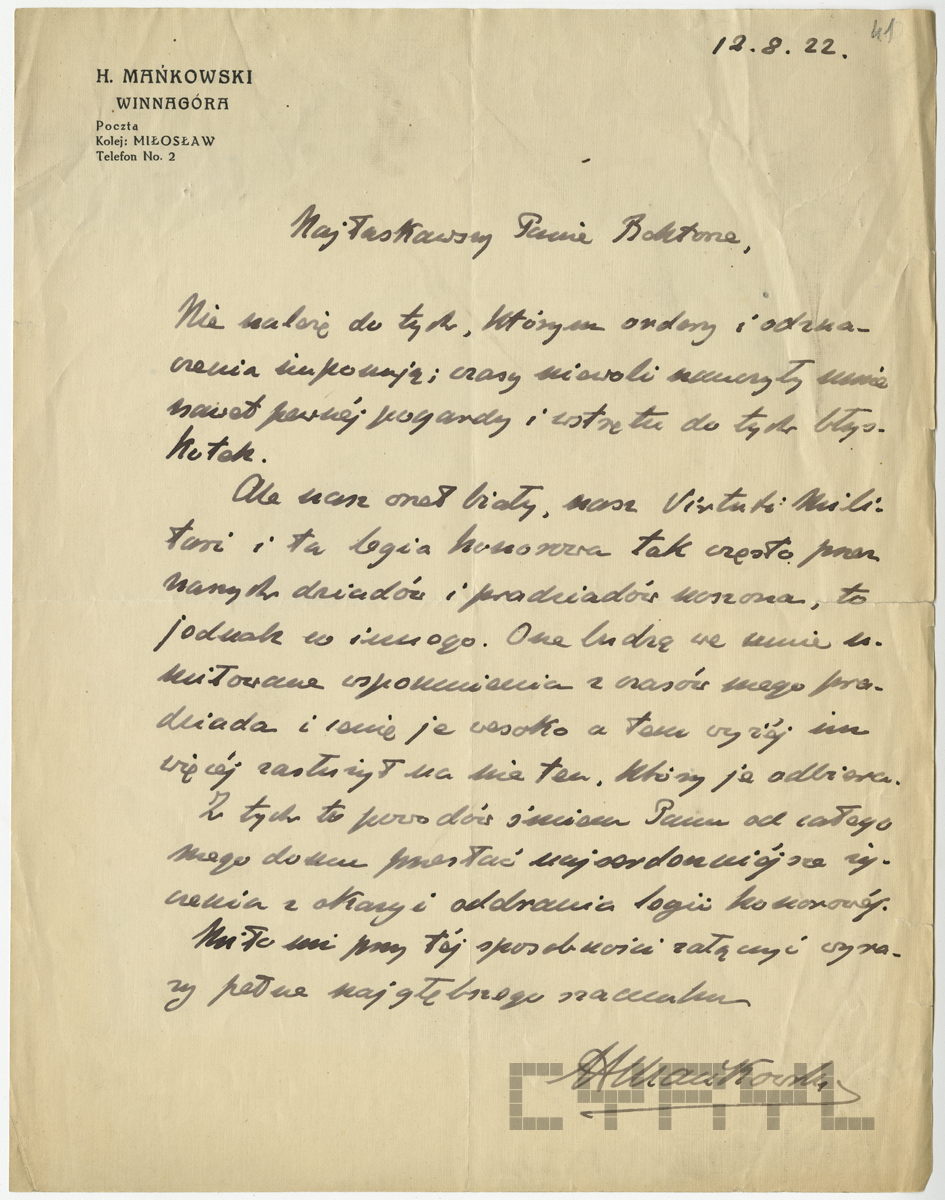 41
12.8.22.
H. MAŃKOWSKI
WINNAGÓRA
Poczta
Kolej: MIŁOSŁAW
Telefon No. 2
Najłaskawszy Panie Doktorze,
Nie należę do tych, którym ordery i odzna-
czenia imponują; czasy niewoli nauczyły mnie
nawet pewnéj pogardy i wstrętu do tych błys-
kotek.
Ale nasz orzeł biały, nasz Virtuti Mili-
tari i ta legia honorowa tak często przez
naszych dziadów i pradziadów noszona, to
jednak co innego. One budzą we mnie u-
miłowane wspomnienia z czasów mego pra-
dziada i cenię je wesoko a tem wyżéj im
więcéj zasłużył na nie ten, który je odbiera.
Z tych to powodów śmiem Panu od całego
mego domu przesłać najserdeczniéjsze ży-
czenia z okazyi oddzania legii honorowéj.
Miło mi przy téj sposobności załączyć wyra-
zy pełne najgłębszego szacunku
HMańkowski
CYRYL